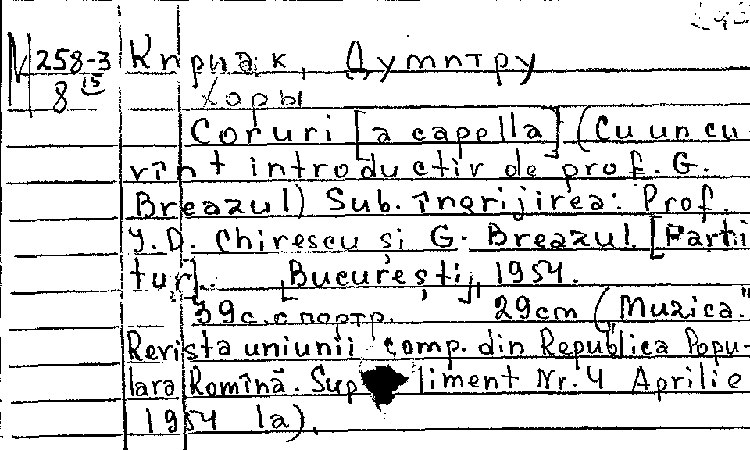 N 258-3
15
8
Кириак, Думитру
Хоры
Coruri [a capella] (Cu un cu-
vînt introductiv de prof. G.
Breazul) Sub. îngrijirea: Prof.
I. D. Chirescu și G. Breazul. [Parti-
tur]. [București], 1954.
39с. с портр. 29cm ("Muzica."
Revista uniunii comp. din Republica Popu-
lara Romînă. Supliment Nr. 4 Aprilie
1954 la).